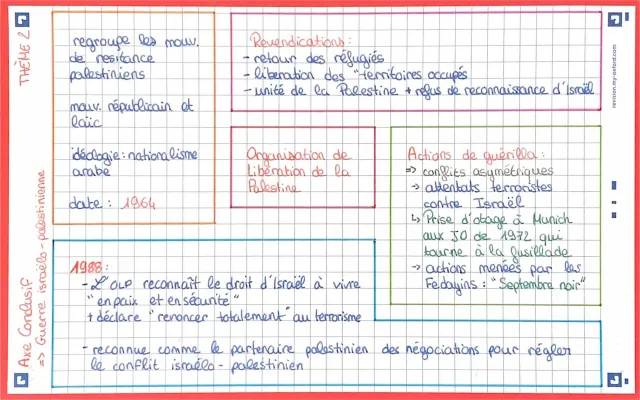 THÈME 2
Axe Conclusif
=> Guerre israélo-palestinienne
regroupe les mouv.
de resitance
palestiniens
mouv. républicain et
laïc
idéologie : nationalisme
arabe
date : 1964
Revendications :
- retour des réfugiés
- libération des "territoires occupés
- unité de la Palestine + refus de reconnaissance d'Israël
Organisation de
Libération de la
Palestine
Actions de guérilla :
=> conflits asymétriques
→ attentats terroristes
contre Israël
↳ Prise d'otage à Munich
aux JO de 1972 qui
tourne à la fusillade
→ actions menées par les
Fedayins : "Septembre noir"
1988 :
- L'OLP reconnaît le droit d'Israël à vivre
"en paix et en sécurité"
+ déclare "renoncer totalement" au terrorisme
- reconnue comme le partenaire palestinien des négociations pour régler
le conflit israélo-palestinien
revision.my-oxford.com